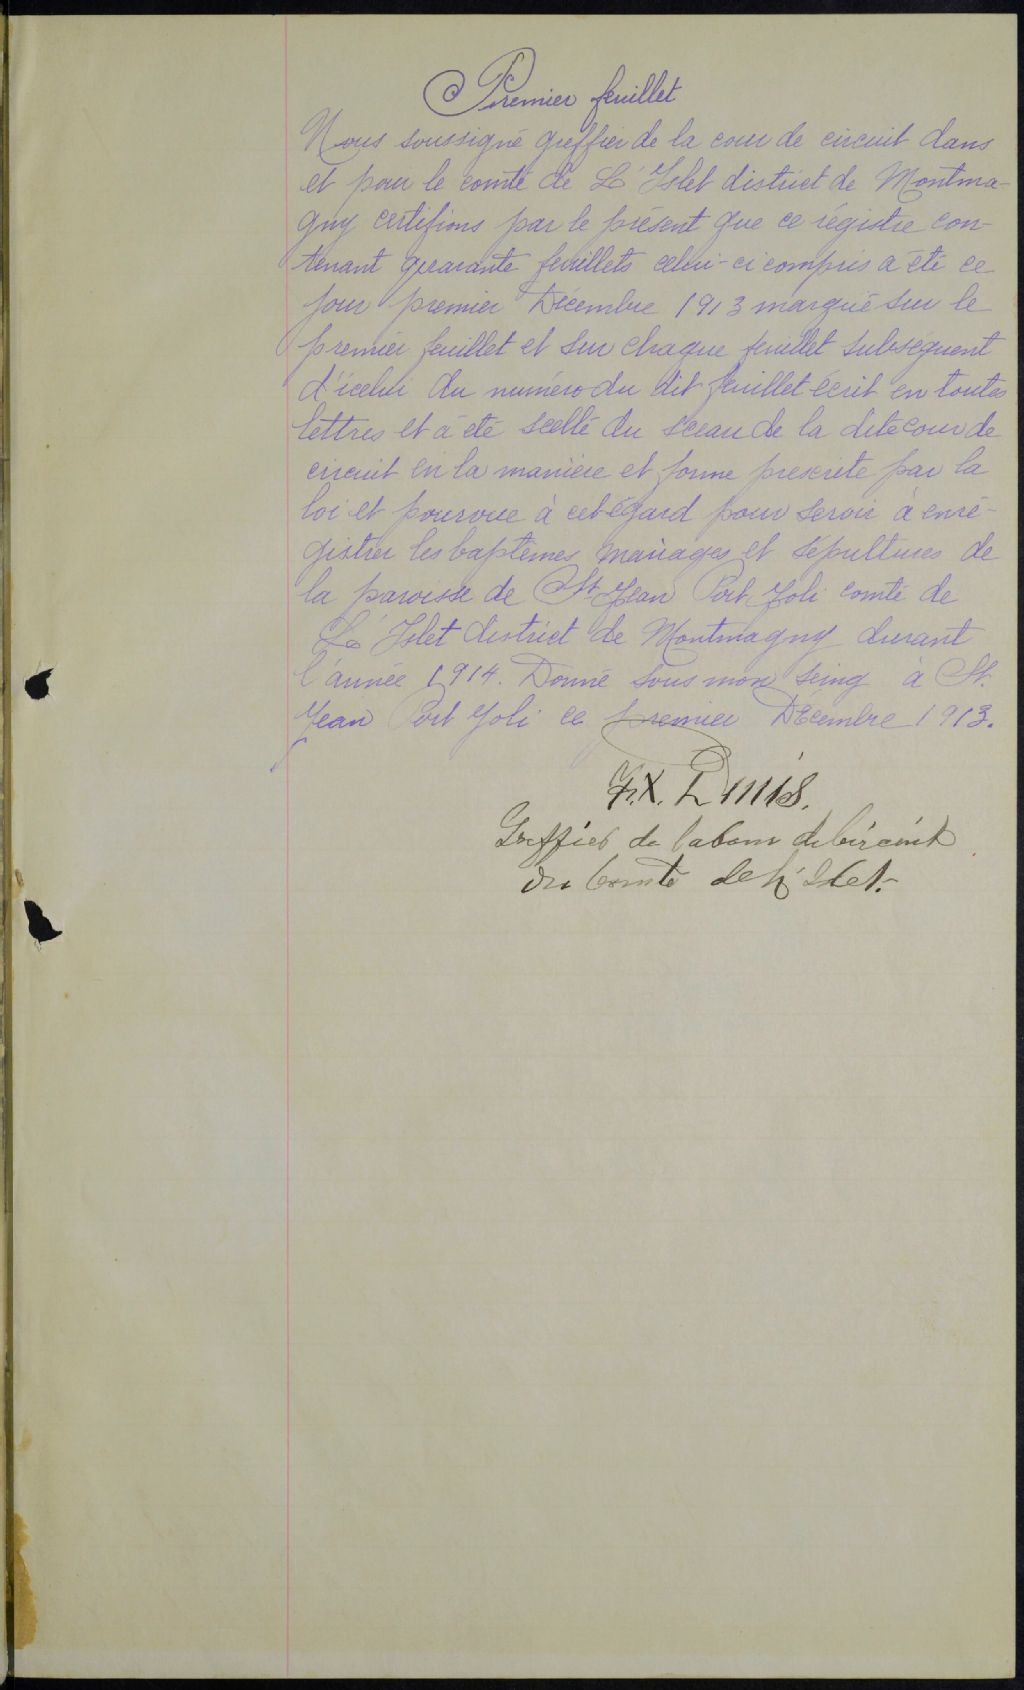 Premier feuillet
Nous soussigné greffier de la cour de circuit dans
et pour le comté de L'Islet district de Montma-
gny certifions par le présent que ce régistre con-
tenant quarante feuillets celui-ci compris a été ce
jour premier Décembre 1913 marqué sur le
premier feuillet et sur chaque feuillet subséquent
d'icelui du numéro du dit feuillet écrit en toutes
lettres et a été scellé du sceau de la dite cour de
circuit en la manière et forme prescrite par la
loi et pourvue à cet égard pour servir à enré-
gistrer les baptêmes mariages et sépultures de
la paroisse de St Jean Port Joli comté de
L'Islet district de Montmagny durant
l'année 1914. Donné sous mon seing à St.
Jean Port Joli ce premier Décembre 1913.
F.X.
Greffier de la Cour de Circuit
du Comté de L'Islet.